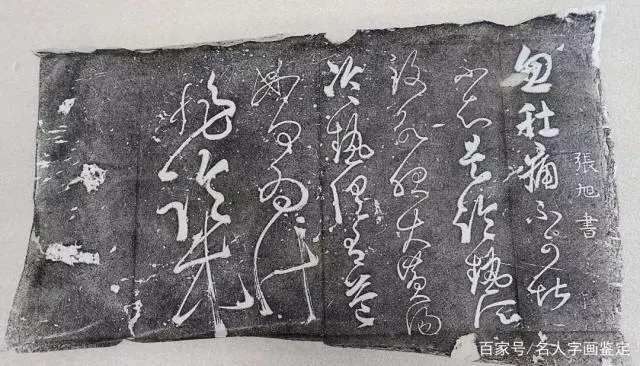 張旭書
忽肚痛不可堪
不知是冷熱所
致欲服大黃湯
冷熱俱有益
如何為計
非臨床
百家号/名人字画鉴定